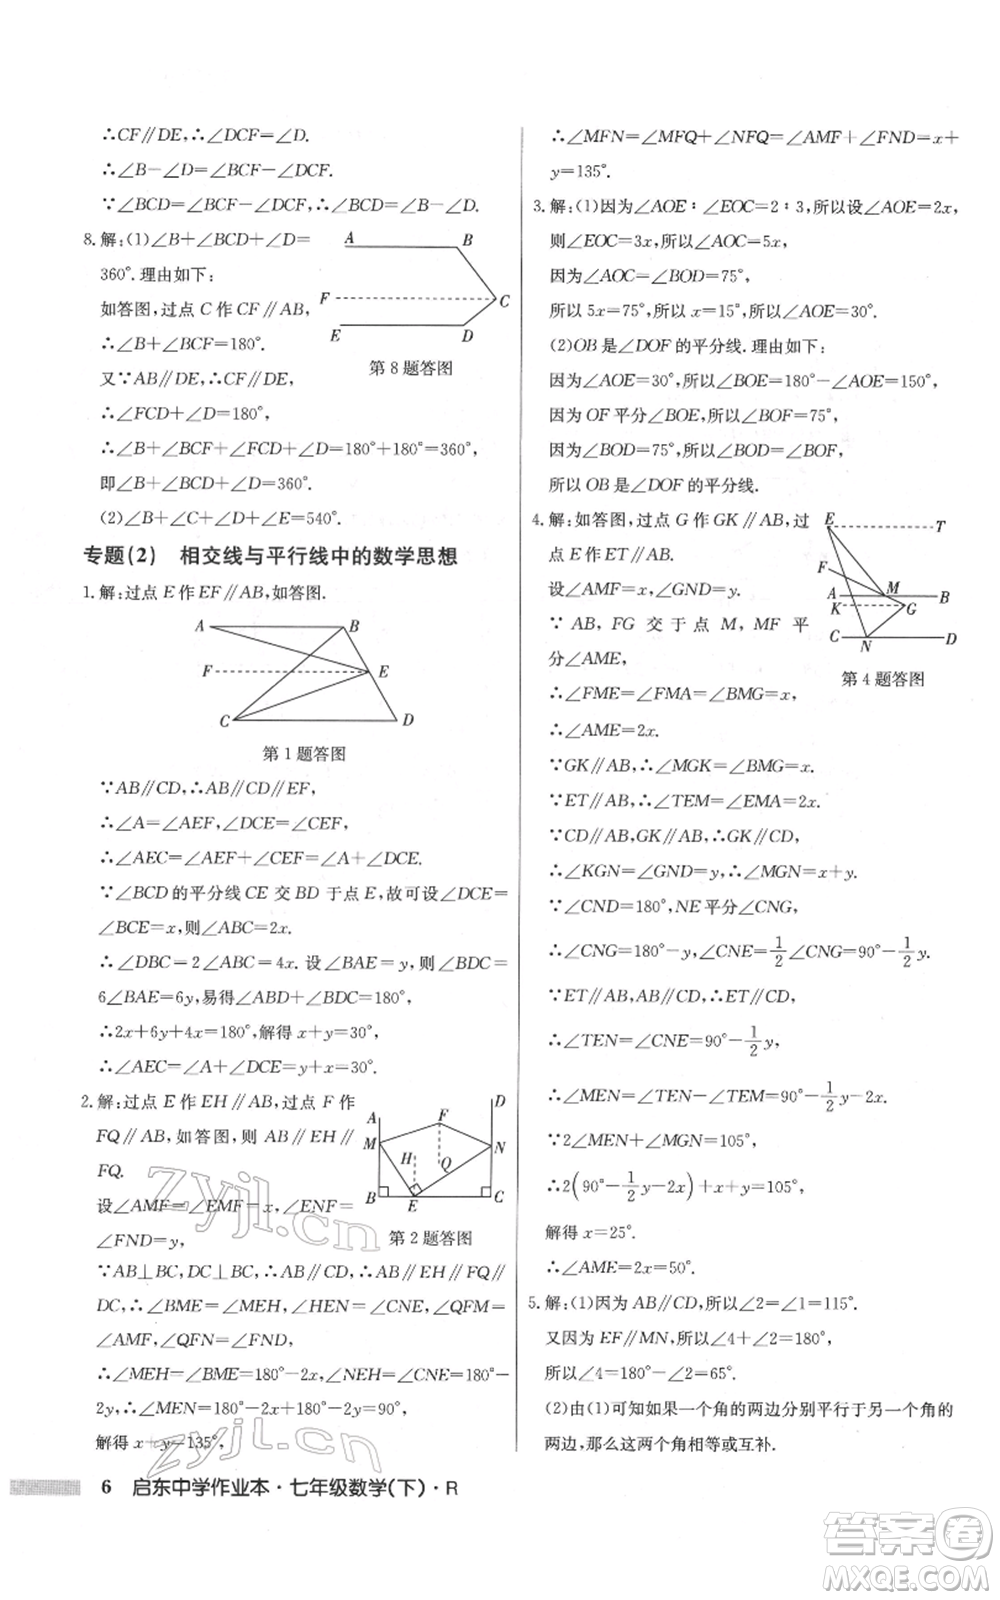 ∴CF∥DE,∴∠DCF=∠D.
∴∠B-∠D=∠BCF-∠DCF.
∵∠BCD=∠BCF-∠DCF,∴∠BCD=∠B-∠D.
8.解:(1)∠B+∠BCD+∠D=
360°.理由如下:
如答图,过点C作CF∥AB,
∴∠B+∠BCF=180°.
又∵AB∥DE,∴CF∥DE,
∴∠FCD+∠D=180°,
A B F C E D
第8题答图
∴∠B+∠BCF+∠FCD+∠D=180°+180°=360°,
即∠B+∠BCD+∠D=360°.
(2)∠B+∠C+∠D+∠E=540°.
专题(2) 相交线与平行线中的数学思想
1.解:过点E作EF∥AB,如答图.
A B F E C D
第1题答图
∵AB∥CD,∴AB∥CD∥EF,
∴∠A=∠AEF,∠DCE=∠CEF,
∴∠AEC=∠AEF+∠CEF=∠A+∠DCE.
∵∠BCD的平分线CE交BD于点E,故可设∠DCE=
∠BCE=x,则∠ABC=2x.
∴∠DBC=2∠ABC=4x.设∠BAE=y,则∠ABD=
6∠BAE=6y,易得∠ABD+∠BDC=180°,
∴2x+6y+4x=180°,解得x+y=30°,
∴∠AEC=∠A+∠DCE=y+x=30°.
2.解:过点E作EH∥AB,过点F作
FQ∥AB,如答图,则AB∥EH∥
FQ.
设∠AMF=∠EMF=x,∠ENF=
∠FND=y,
A M F D N H Q B E C
第2题答图
∵AB⊥BC,DC⊥BC,∴AB∥EH∥FQ∥
DC,∴∠BME=∠MEH,∠HEN=∠CNE,∠QFM=
∠AMF,∠QFN=∠FND,
∴∠MEH=∠BME=180°-2x,∠NEH=∠CNE=180°-
2y,∴∠MEN=180°-2x+180°-2y=90°,
解得x+y=135°,
∴∠MFN=∠MFQ+∠NFQ=∠AMF+∠FND=x+
y=135°.
3.解:(1)因为∠AOE∶∠EOC=2∶3,所以设∠AOE=2x,
则∠EOC=3x,所以∠AOC=5x,
因为∠AOC=∠BOD=75°,
所以5x=75°,所以x=15°,所以∠AOE=30°.
(2)OB是∠DOF的平分线.理由如下:
因为∠AOE=30°,所以∠BOE=180°-∠AOE=150°,
因为OF平分∠BOE,所以∠BOF=75°,
因为∠BOD=75°,所以∠BOD=∠BOF,
所以OB是∠DOF的平分线.
4.解:如答图,过点G作GK∥AB,过
点E作ET∥AB.
设∠AMF=x,∠GND=y.
∵AB,FG交于点M,MF平
分∠AME,
E T F A M B K G C N D
第4题答图
∴∠FME=∠FMA=∠BMG=x,
∴∠AME=2x.
∵GK∥AB,∴∠MGK=∠BMG=x.
∵ET∥AB,∴∠TEM=∠EMA=2x.
∵CD∥AB,GK∥AB,∴GK∥CD,
∴∠KGN=∠GND=y,∴∠MGN=x+y.
∵∠CND=180°,NE平分∠CNG,
∴∠CNG=180°-y,∠CNE=1/2∠CNG=90°-1/2y.
∵ET∥AB,AB∥CD,∴ET∥CD,
∴∠TEN=∠CNE=90°-1/2y,
∴∠MEN=∠TEN-∠TEM=90°-1/2y-2x.
∵2∠MEN+∠MGN=105°,
∴2(90°-1/2y-2x)+x+y=105°,
解得x=25°.
∴∠AME=2x=50°.
5.解:(1)因为AB∥CD,所以∠2=∠1=115°.
又因为EF∥MN,所以∠4+∠2=180°,
所以∠4=180°-∠2=65°.
(2)由(1)可知如果一个角的两边分别平行于另一个角的
两边,那么这两个角相等或互补.
6 启东中学作业本·七年级数学(下)·R
zyjl.cn
zyjl.cn
答案卷
MXQE.COM